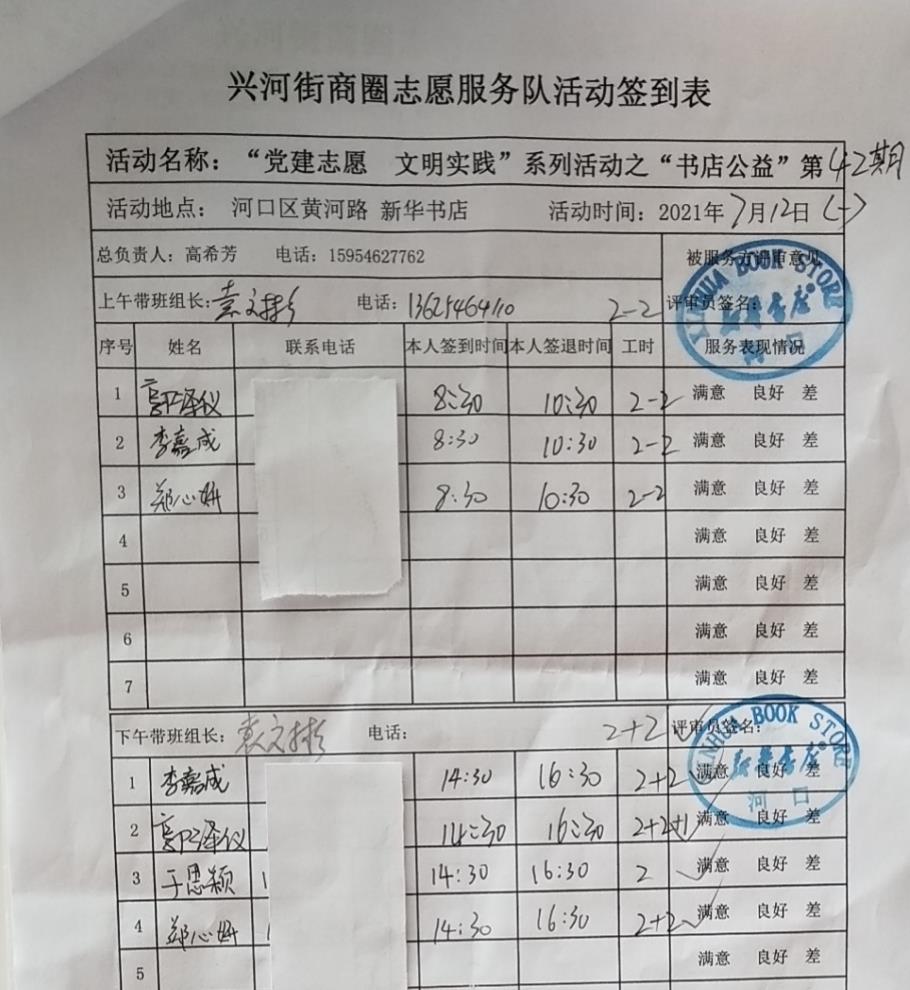 兴河街商圈志愿服务队活动签到表
活动名称：“党建志愿 文明实践”系列活动之“书店公益”第42期
活动地点： 河口区黄河路 新华书店 活动时间：2021年7月12日(一)
总负责人：高希芳 电话：15954627762 被服务方评审意见
上午带班组长：袁文彬 电话： 2-2 评审员签名：
XINHUA BOOK STORE
新华书店
河口
序号 姓名 联系电话 本人签到时间 本人签退时间 工时 服务表现情况
1 郭泽仪 8:30 10:30 2-2 满意 良好 差
2 李嘉成 8:30 10:30 2-2 满意 良好 差
3 郑心妍 8:30 10:30 2-2 满意 良好 差
4 满意 良好 差
5 满意 良好 差
6 满意 良好 差
7 满意 良好 差
下午带班组长：袁文彬 电话： 2+2 评审员签名：
XINHUA BOOK STORE
新华书店
河口
1 李嘉成 14:30 16:30 2+2 满意 良好 差
2 郭泽仪 14:30 16:30 2+2+1 满意 良好 差
3 于恩颖 14:30 16:30 2 满意 良好 差
4 郑心妍 14:30 16:30 2+2 满意 良好 差
5 满意 良好 差